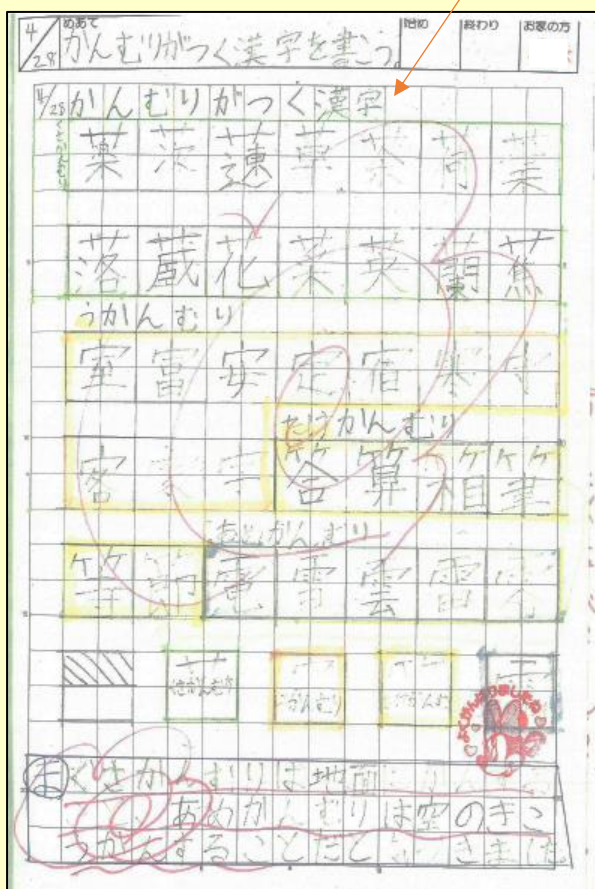 4/28 めあて かんむりがつく漢字を書こう。 始め 終わり お家の方
4/28 かんむりがつく漢字
くさかんむり
薬 茨 草 茶 荷 葉
落 蔵 花 菜 英 蘭 蕉
うかんむり
室 富 安 定 宿
たけかんむり
客 答 算 箱 筆
あめかんむり
等 節 電 雪 雲 雷
くさかんむり うかんむり
よくがんばりましたね
ま くさかんむりは地面に
あめかんむりは空のきこ
うかんすることだと きました